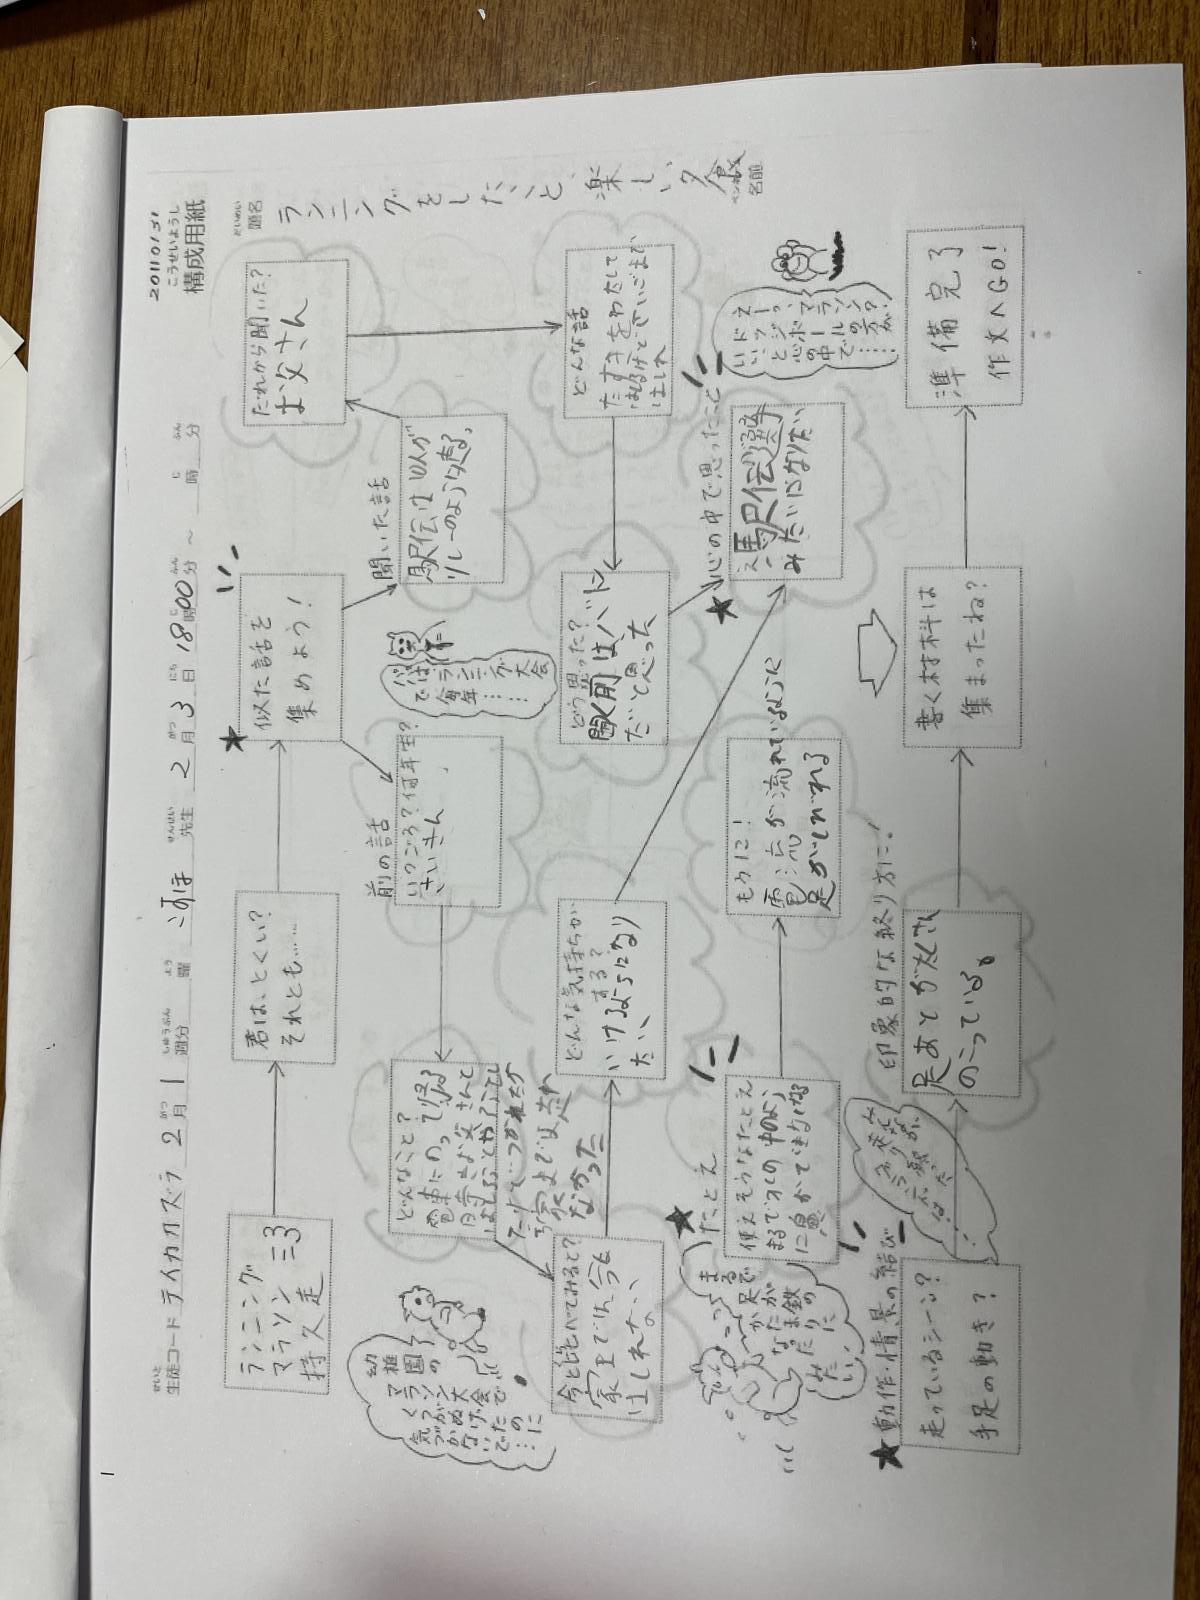 20110131
こうせいようし
構成用紙
生徒コード テイカカズラ 2月1週分 曜 先生 2月3日 18時00分 ～ 時 分
題名
ランニングをしたこと、楽しい夕食
名前
ランニング
マラソン
持久走
君は、とくい?
それとも……
★
似た話を
集めよう!
だれから聞いた?
お父さん
聞いた話
駅伝は10人が
リレーのように走る。
前の話
いつごろ?何年生?
さいきん
パパの会社
では、
毎年……
ランニング大会
どんなこと?
電車にのって帰る
日時もお父さんと
つかれたが
家までは走
なかった
幼稚園の
マラソン大会で
くつがぬげたのに
気づかないで……
今と比べてみると?
家まで
今も
はしれない
どんな気持ちが
する?
いけるようになり
たい
どう思った?
聞く前はバトン
だと思った
どんな話
たすきをわたして
はしれ
★心の中で思ったこと
駅伝選手
みたいになりたい
エーっ、マラソン?
ドッジボールの方が
いいと心の中で……
★たとえ
使えそうなたとえ
まるで
まるで足が
なまりか鉄の
かたまりに
なったみたい
もう1こ!
電流が流れているように
足がしびれる
★動作・情景の結び
走っているシーン?
手足の動き?
印象的な終り方に!
足あとがたくさん
のこっている。
書く材料は
集まったね?
準備完了
作文へGO!